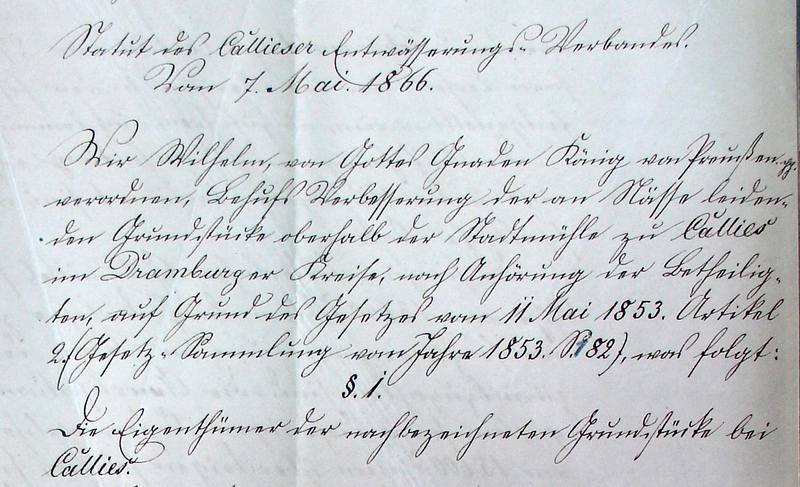 Statut des Callieser Entwässerungs-Verbandes.
Vom 7. Mai. 1866.
Wir Wilhelm, von Gottes Gnaden König von Preußen pp.
verordnen, Behufs Verbesserung der an Nässe leiden-
den Grundstücke oberhalb der Stadtmühle zu Callies
im Dramburger Kreise, nach Anhörung der Betheilig-
ten, auf Grund des Gesetzes vom 11 Mai 1853. Artikel
2. (Gesetz-Sammlung vom Jahre 1853. S. 182), was folgt:
§. 1.
Die Eigenthümer der nachbezeichneten Grundstücke bei
Callies.